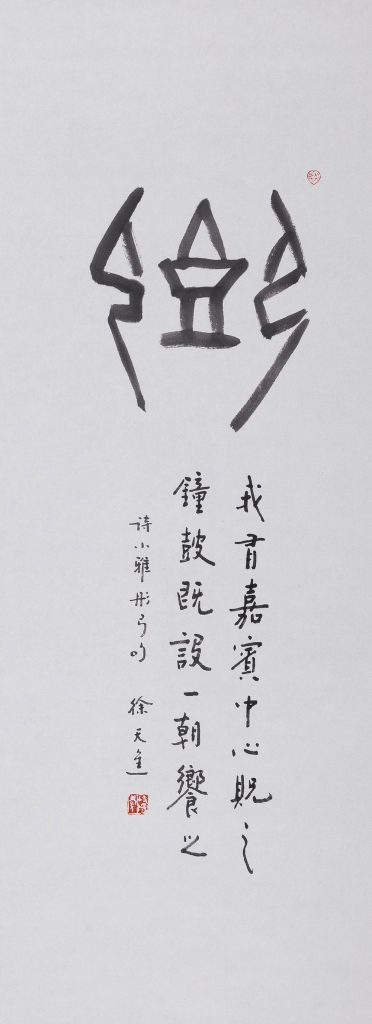 饗
我有嘉賓中心貺之
鐘鼓既設一朝饗之
诗小雅彤弓句 徐天進